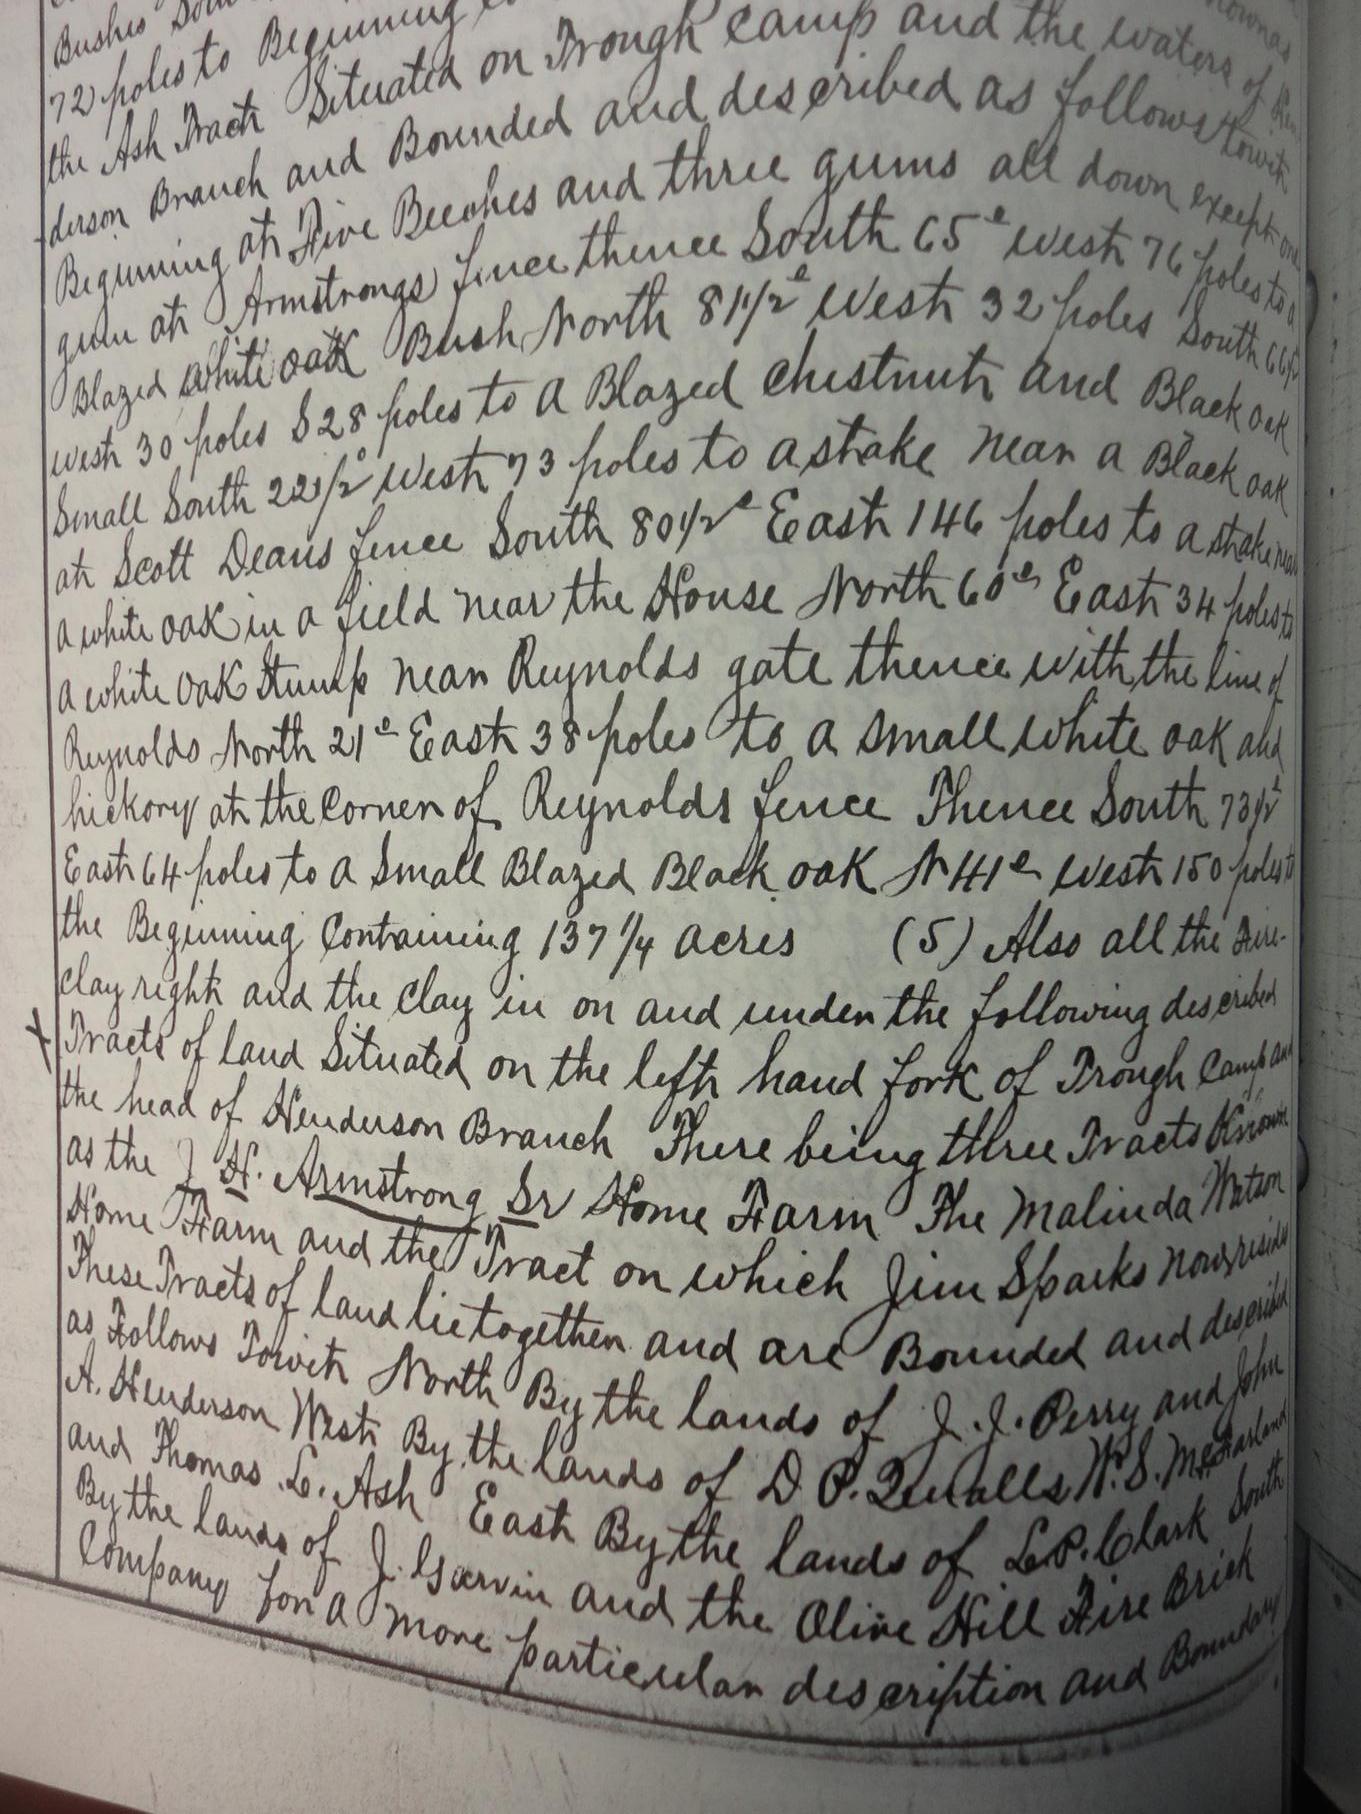 Bushes
72 poles to Beginning
the Ash Tract Situated on Trough Camp and the waters of
derson Branch and Bounded and described as follows towit
Beginning at Five Beeches and three gums all down except one
gum at Armstrongs fence thence South 65° West 76 poles to a
Blazed white oak Bush North 81 1/2° West 32 poles South 66 1/2
west 30 poles S 28 poles to a Blazed chestnut and Black oak
Small South 22 1/2° West 73 poles to a stake near a Black oak
at Scott Deans fence South 80 1/2° East 146 poles to a stake near
a white oak in a field near the House North 60° East 34 poles to
a white oak Stump near Reynolds gate thence with the line of
Reynolds North 21° East 38 poles to a small white oak and
hickory at the corner of Reynolds fence Thence South 73 1/2°
East 64 poles to a Small Blazed Black oak N 41° West 150 poles to
the Beginning Containing 137 1/4 acres (5) Also all the Fire-
clay right and the clay in on and under the following described
X Tracts of land Situated on the left hand fork of Trough Camp and
the head of Henderson Branch There being three Tracts Known
as the J. H. Armstrong Sr Home Farm The Malinda Watson
Home Farm and the Tract on which Jim Sparks now resides
These Tracts of land lie together and are Bounded and described
as Follows Towit North By the lands of J. J. Perry and John
A. Henderson West By the lands of D. P. Qualls W. S. McFarland
and Thomas L. Ash East By the lands of L. P. Clark South
By the lands of J. Garvin and the Olive Hill Fire Brick
Company for a more particular description and Boundary